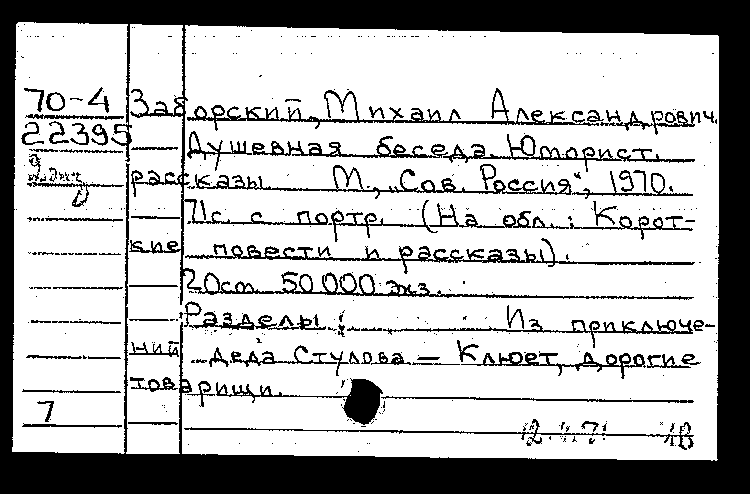 70-4 Заборский, Михаил Александрович.
22395 Душевная беседа. Юморист.
рассказы М., „Сов. Россия", 1970.
71с. с портр. (На обл.: Корот-
кие повести и рассказы).
20см 50 000 экз.
Разделы: Из приключе-
ний деда Стулова — Клюет, дорогие
товарищи.
7
12.4.71 18